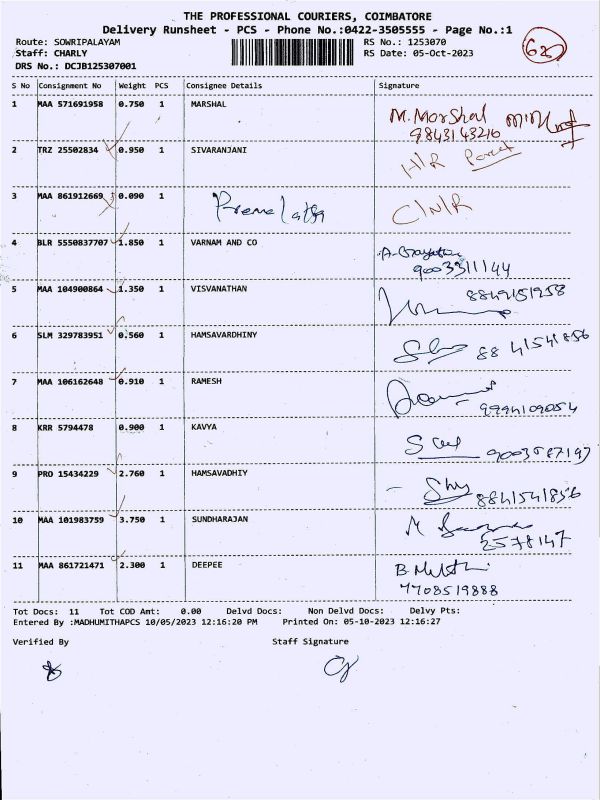 THE PROFESSIONAL COURIERS, COIMBATORE
Delivery Runsheet - PCS - Phone No.:0422-3505555 - Page No.:1
Route: SOWRIPALAYAM RS No.: 1253070
Staff: CHARLY RS Date: 05-Oct-2023
DRS No.: DCJB125307001
S No Consignment No Weight PCS Consignee Details Signature
1 MAA 571691958 0.750 1 MARSHAL M. Marshal
9843143216
2 TRZ 25502834 0.950 1 SIVARANJANI H/R
3 MAA 861912669 0.090 1 Premalatha C/N/R
4 BLR 5550837707 1.850 1 VARNAM AND CO
9003311144
5 MAA 104900864 1.350 1 VISVANATHAN
6 SLM 329783951 0.560 1 HAMSAVARDHINY 8841541856
7 MAA 106162648 0.910 1 RAMESH
8 KRR 5794478 0.900 1 KAVYA
9 PRO 15434229 2.760 1 HAMSAVADHIY 8841541856
10 MAA 101983759 3.750 1 SUNDHARAJAN
2578147
11 MAA 861721471 2.300 1 DEEPEE
7708519888
Tot Docs: 11 Tot COD Amt: 0.00 Delvd Docs: Non Delvd Docs: Delvy Pts:
Entered By :MADHUMITHAPCS 10/05/2023 12:16:20 PM Printed On: 05-10-2023 12:16:27
Verified By Staff Signature